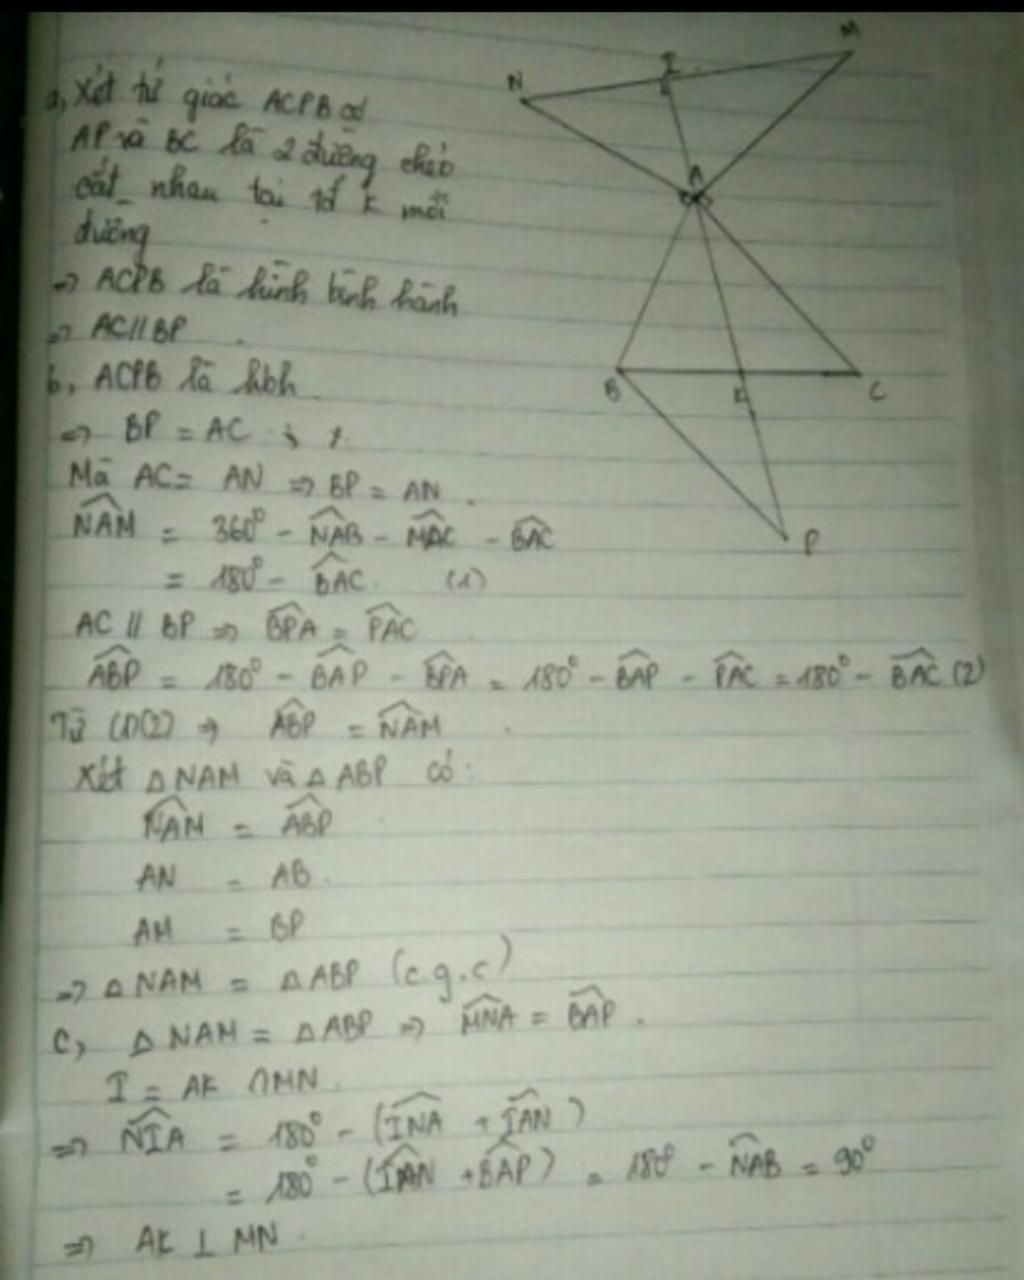 a, Xét tứ giác ACPB có
AP và BC là 2 đường chéo
cắt nhau tại tđ K mỗi
đường
=> ACPB là hình bình hành
=> AC // BP
b, ACPB là hbh
=> BP = AC ;
Mà AC = AN => BP = AN
NAM = 360° - NAB - MAC - BAC
= 180° - BAC (1)
AC // BP => BPA = PAC
ABP = 180° - BAP - BPA = 180° - BAP - PAC = 180° - BAC (2)
Từ (1)(2) => ABP = NAM
Xét △NAM và △ABP có:
NAM = ABP
AN = AB
AM = BP
=> △NAM = △ABP (c.g.c)
c, △NAM = △ABP => MNA = BAP
I = AK ∩ MN
=> NIA = 180° - (INA + IAN)
= 180° - (IAN + BAP) = 180° - NAB = 90°
=> AK ⊥ MN
N
I
M
A
B
K
C
P